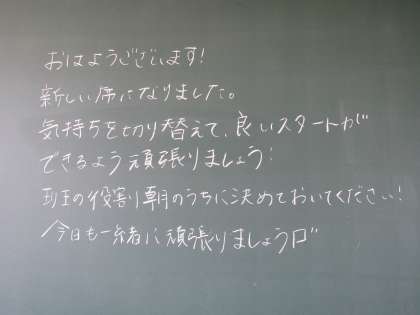 おはようございます!
新しい席になりました。
気持ちを切り替えて、良いスタートが
できるよう頑張りましょう!
班の役割り朝のうちに決めておいてください!
今日も一緒に頑張りましょう